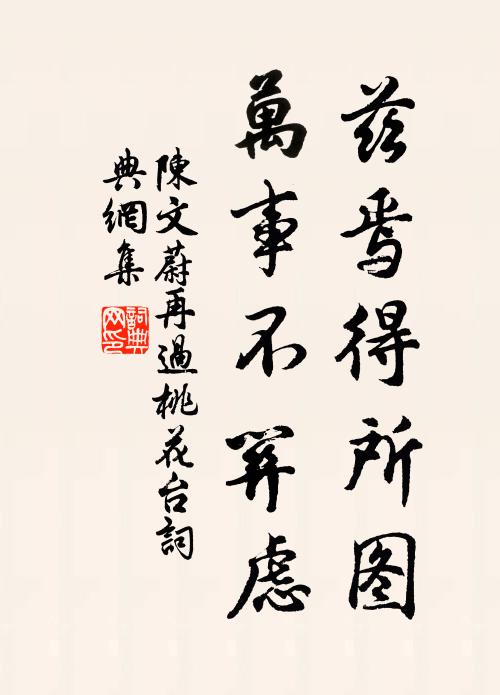 兹焉得所图
萬事不羿慮
陳文蔚再過桃花台詞
典網集
詞典
网印